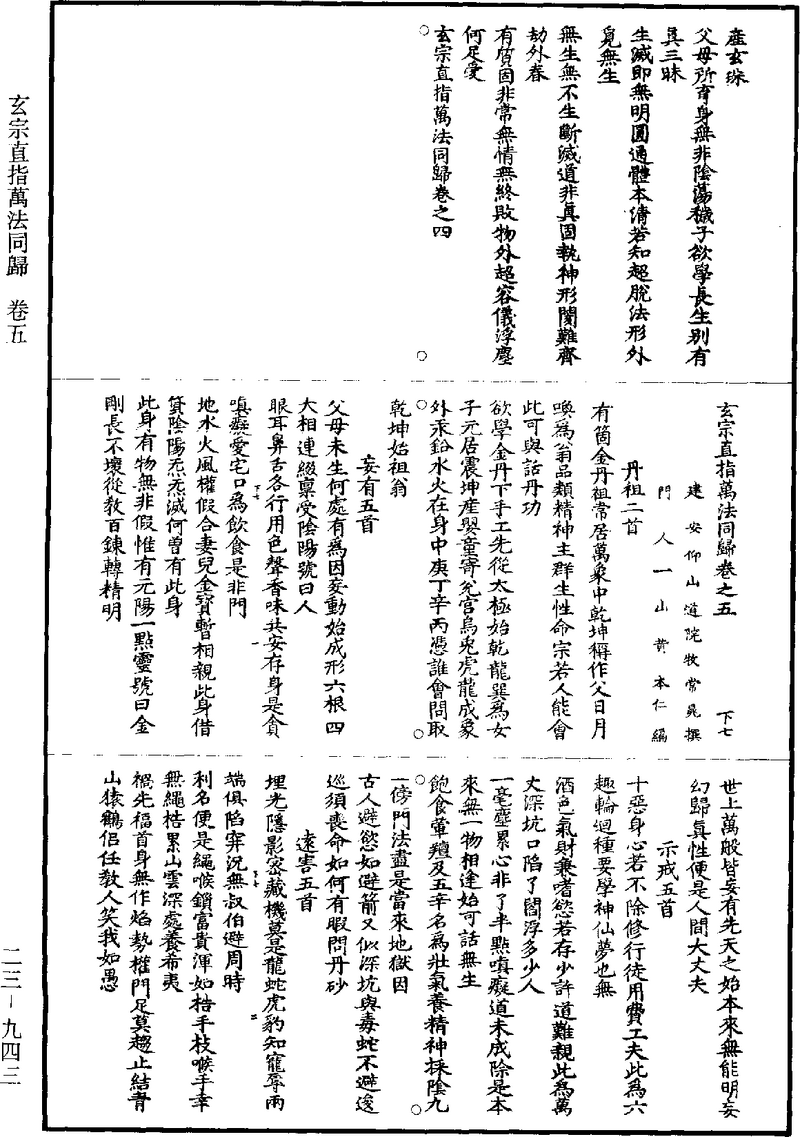 玄宗直指萬法同歸　卷五
產玄珠
父母所育身無非陰蕩穢子欲學長生別有
真三昧
生滅即無明圓通體本清若知超脫法形外
覓無生
無生無不生斷滅道非真固執神形闌難齊
劫外春
有質固非常無情無終敗物外超容儀浮塵
何足愛
玄宗直指萬法同歸卷之四
玄宗直指萬法同歸卷之五　下七
建安仰山道院牧常晁撰
門人一山黃本仁編
丹祖二首
有箇金丹祖常居萬象中乾坤稱作父日月
喚為翁品類精神主群生性命宗若人能會
此可與話丹功
欲學金丹下手工先從太極始乾龍巽為女
子元居震坤產嬰童寄兌宮烏兎虎龍成象
外汞鉛水火在身中庚丁辛丙憑誰會問取
乾坤始祖翁
妄有五首
父母未生何處有為因妄動始成形六根四
大相連綴稟受陰陽號曰人
眼耳鼻舌各行用色聲香味共安存身是貪
嗔癡愛宅口為飲食是非門
地水火風權假合妻兒金寶暫相親此身借
貸陰陽炁炁滅何曾有此身
此身有物無非假惟有元陽一點靈號曰金
剛長不壞從教百鍊轉精明
世上萬般皆妄有先天之始本來無能明妄
幻歸真性便是人間大丈夫
示戒五首
十惡身心若不除修行徒用費工夫此為六
趣輪迴種要學神仙夢也無
酒色氣財兼嗜慾若存少許道難親此為萬
丈深坑口陷了閻浮多少人
一毫塵累心非了半點嗔癡道未成除是本
來無一物相逢始可話無生
飽食葷羶及五辛名為壯氣養精神採陰九
一傍門法盡是當來地獄因
古人避慾如避箭又似深坑與毒蛇不避逡
巡須喪命如何有暇問丹砂
遠害五首
埋光隱影密藏機莫是龍蛇虎豹知寵辱兩
端俱陷穽況無叔伯避周時
利名便是繩喉鎖富貴渾如梏手枝喉手幸
無繩梏累山雲深處養希夷
禍先福首身無作焰勢權門足莫趨止結青
山猿鶴侶任教人笑我如愚
二三－九四三